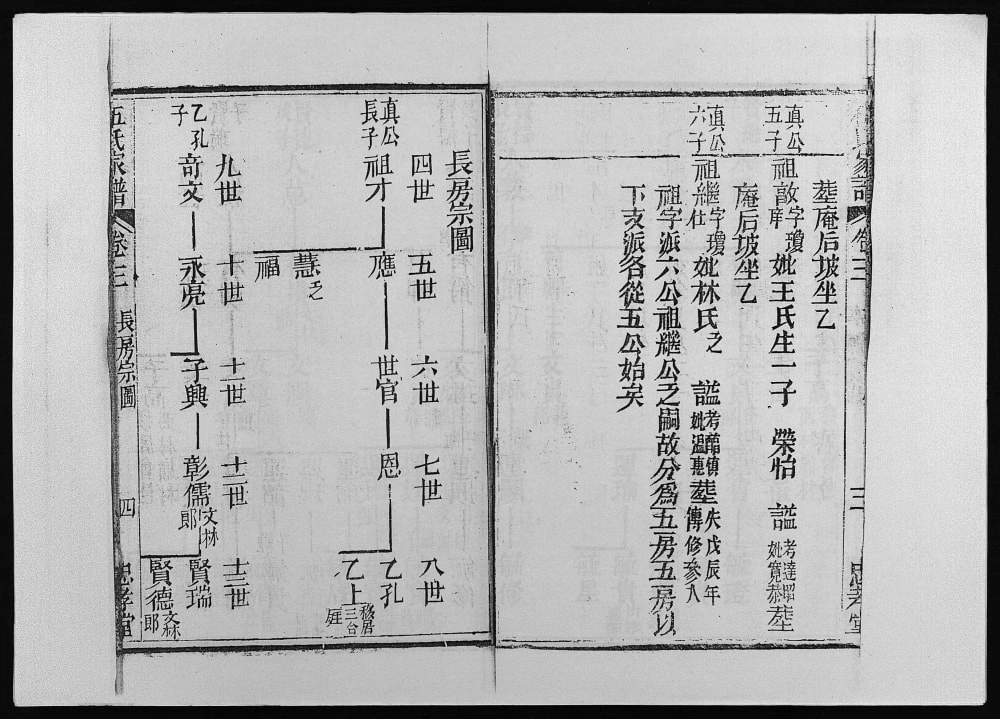 塟庵后坡坐乙
真公五子
祖敔字瓊庠 妣王氏生一子 榮怡 諡考達昭妣寬恭塟
庵后坡坐乙
真公六子
祖繼字瓊仕 妣林氏之 諡考妣溫惠塟失戊辰年傳修參入
祖字派六公祖繼公之嗣故分為五房五房以
下支派各從五公始矣
三 忠孝堂
長房宗圖
四世 五世 六世 七世 八世
真公長子
祖才 應 世官 恩 乙孔
乙上移居三台庭
慧之
福
九世 十世 十一世 十二世 十三世
乙孔子
奇文 永亮 子興 彰儒文林郎 賢瑞
賢德文林郎
伍氏家譜 卷三 長房宗圖 四 忠孝堂